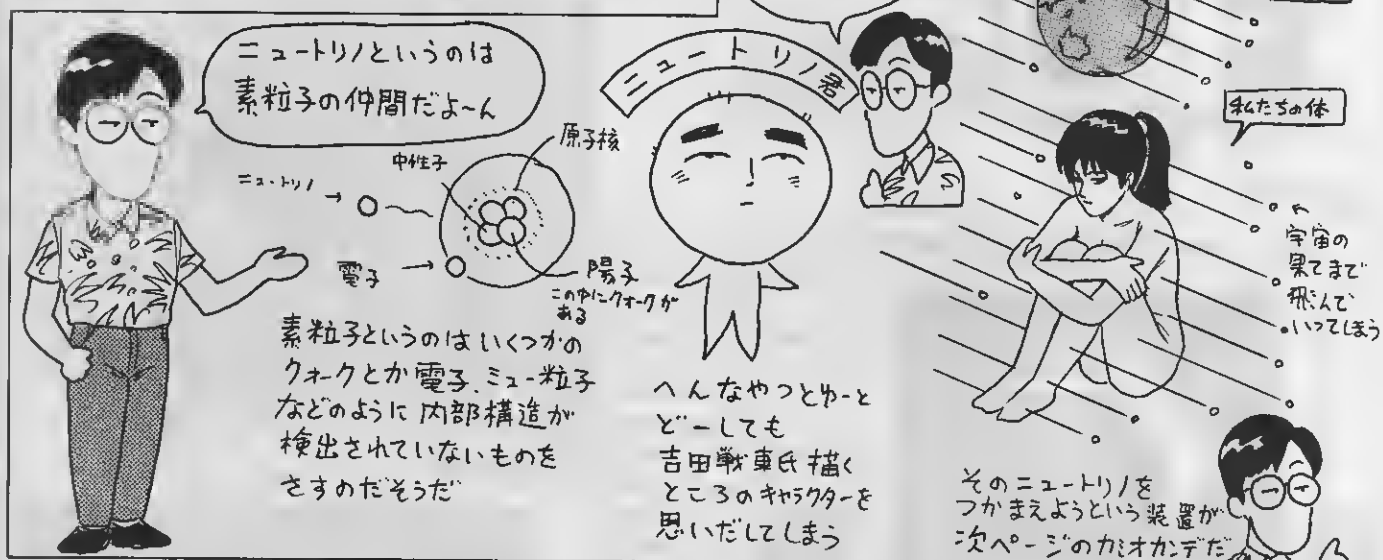 ニュートリノというのは
素粒子の仲間だよ~ん
ニュートリノ→
中性子
原子核
電子→
陽子
この中にクォークが
ある
素粒子というのはいくつかの
クォークとか電子、ミュー粒子
などのように内部構造が
検出されていないものを
さすのだそうだ
ニュートリノ君
へんなやつとゆーと
どーしても
吉田戦車氏描く
ところのキャラクターを
思いだしてしまう
私たちの体
宇宙の
果てまで
飛んで
いってしまう
そのニュートリノを
つかまえようという装置が
次ページのカミオカンデだ